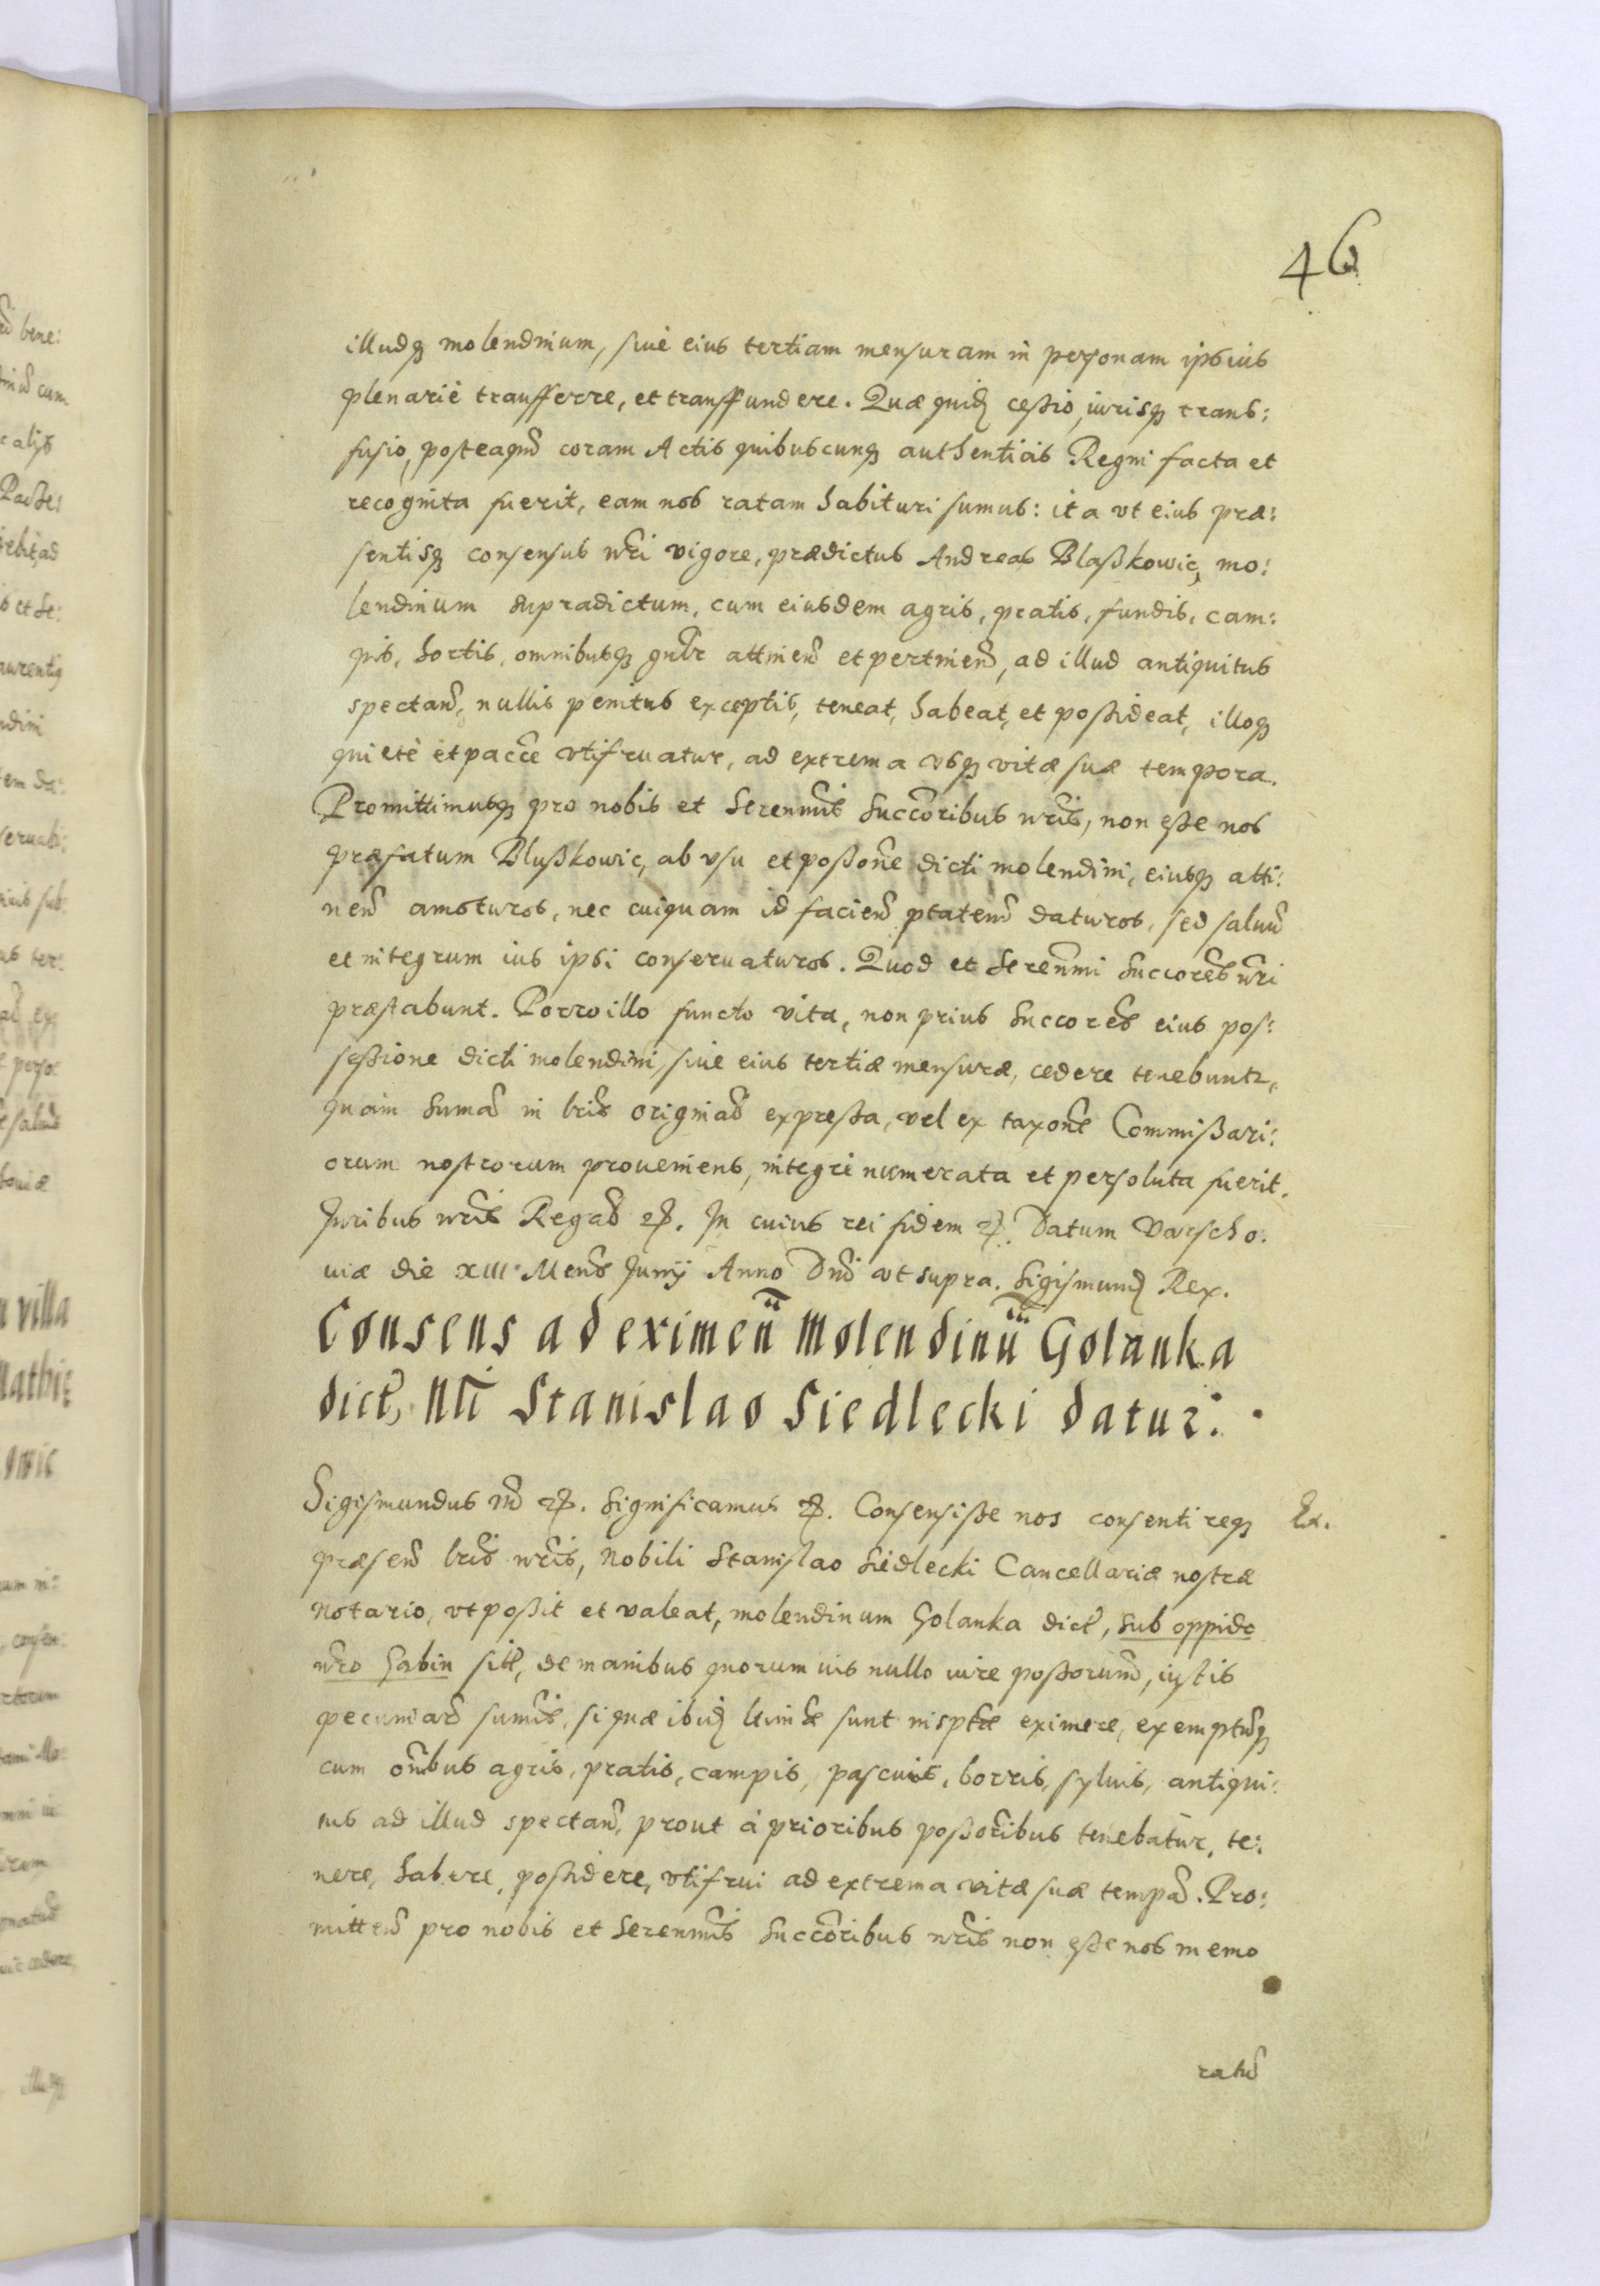 46
illudq molendinum, siue eius tertiam mensuram in personam ipsius
plenarie transferre, et transfundere. Quæ quid cessio, iurisq trans:
fusio, posteaqm coram Actis quibuscunq authenticis Regni facta et
recognita fuerit, eam nos ratam habituri sumus: ita vt eius præ:
sentisq consensus nri vigore, prædictus Andreas Blaßkowic, mo:
lendinum supradictum, cum eiusdem agris, pratis, fundis, cam:
pis, hortis, omnibusq gnlr attinen et pertinen, ad illud antiquitus
spectan, nullis penitus exceptis, teneat, habeat, et possideat, illoq
quietè et pacce vtifruatur, ad extrema vsq vitæ suæ tempora.
Promittimusq pro nobis et Serenmis Succoribus nris, non eße nos
præfatum Blußkowic, ab vsu et poßone dicti molendini, eiusq atti:
nen amoturos, nec cuiquam id facien ptatem daturos, sed saluu
et integrum ius ipsi conseruaturos. Quod et Serenmi Succores nri
præstabunt. Porro illo functo vita, non prius Succores eius pos:
seßione dicti molendini, siue eius tertiæ mensuræ, cedere tenebuntr,
quam suma in lris originab expreßa, vel ex taxone Commißari:
orum nostrorum proueniens, integrè numerata et persoluta fuerit.
Juribus nris Regab etc. In cuius rei fidem etc. Datum Varscho:
uiæ die XIII Mens Junij Anno Dni vt supra. Sigismund Rex.
Consens ad eximen Molendinu Golanka
dict, Nli Stanislao Siedlecki datur.
Sigismundus IIId etc. Significamus etc. Consensiße nos consentireq
Ex.
præsen lris nris, Nobili Stanislao Siedlecki Cancellariæ nostræ
Notario, vt poßit et valeat, molendinum Golanka dict, sub oppido
nro Gabin sit, de manibus quorumuis nullo iure poßorum, iustis
pecuniar sumis, si quæ ibid sunt insptæ eximere, exemptuq
cum onibus agris, pratis, campis, pascuis, borris, syluis, antiqui:
tus ad illud spectan, prout à prioribus poßoribus tenebatur, te:
nere, habere, poßidere, vtifrui ad extrema vitæ suæ tempa. Pro:
mitten pro nobis et Serenmis Succoribus nris non eße nos memo
ratu